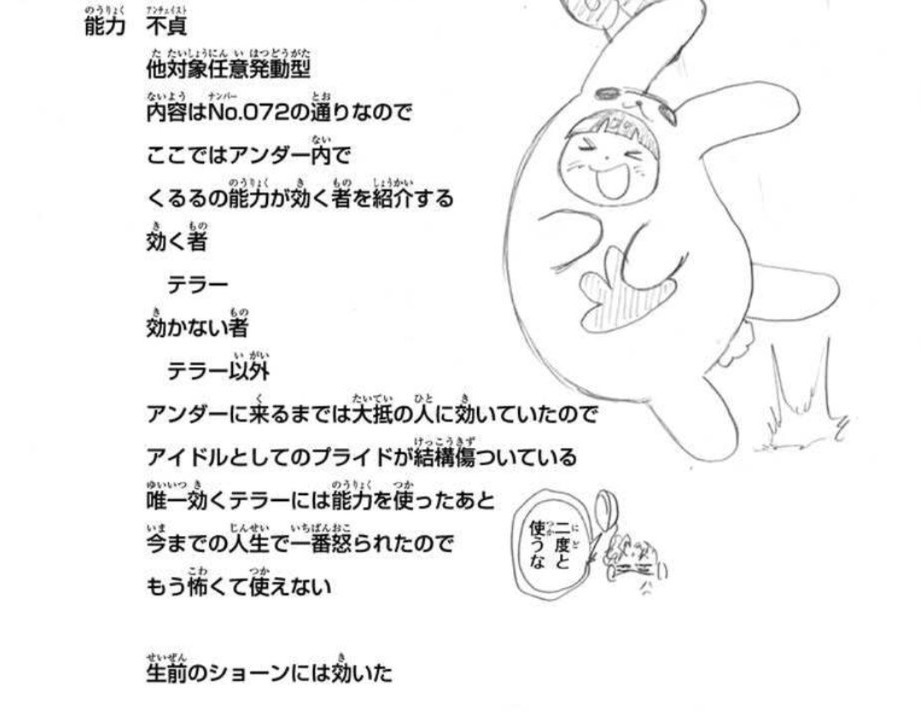 能力　不貞
他対象任意発動型
内容はNo.072の通りなので
ここではアンダー内で
くるるの能力が効く者を紹介する
効く者
　テラー
効かない者
　テラー以外
アンダーに来るまでは大抵の人に効いていたので
アイドルとしてのプライドが結構傷ついている
唯一効くテラーには能力を使ったあと
今までの人生で一番怒られたので
もう怖くて使えない
二度と
使うな
生前のショーンには効いた